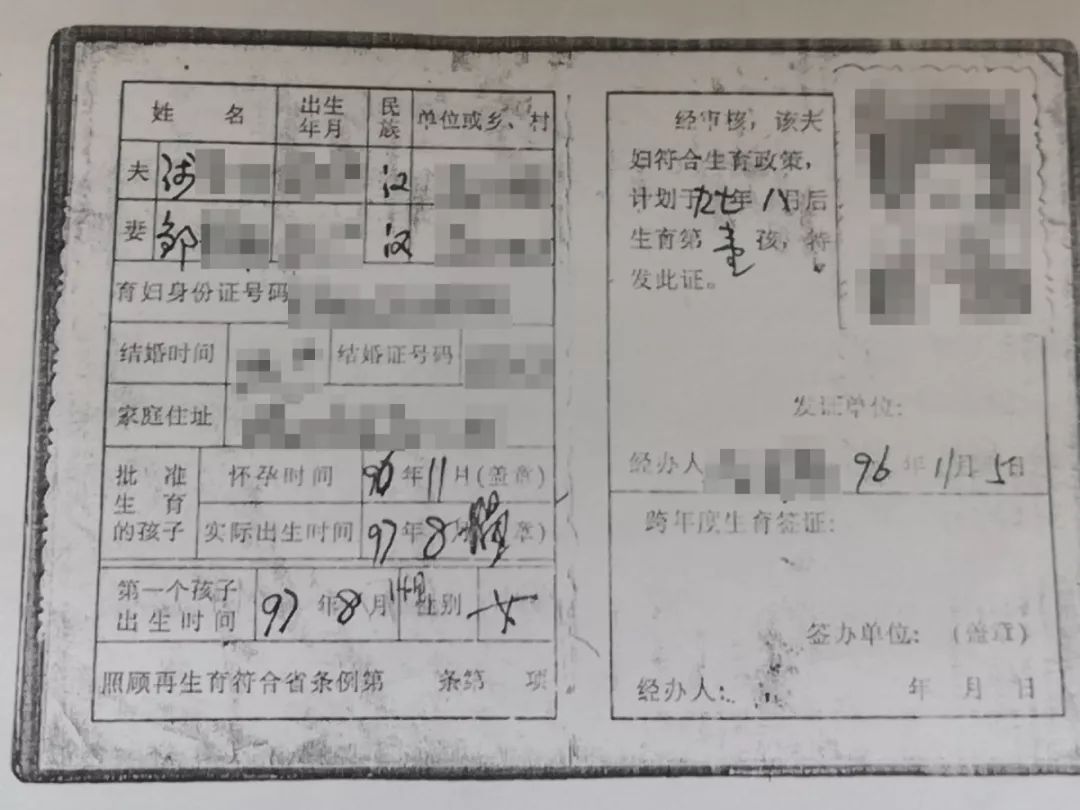 姓 名 出生年月 民族 单位或乡、村
夫 汉
妻 邹 汉
育妇身份证号码
结婚时间 结婚证号码
家庭住址
批准生育的孩子 怀孕时间 96年11月(盖章)
实际出生时间 97年8月 章)
第一个孩子出生时间 97年8月 性别 女
照顾再生育符合省条例第 条第 项
经审核，该夫
妇符合生育政策，
计划于九七年八月后
生育第壹孩，特
发此证。
发证单位：
经办人 96年11月5日
跨年度生育签证：
签办单位：（盖章）
经办人： 年 月 日